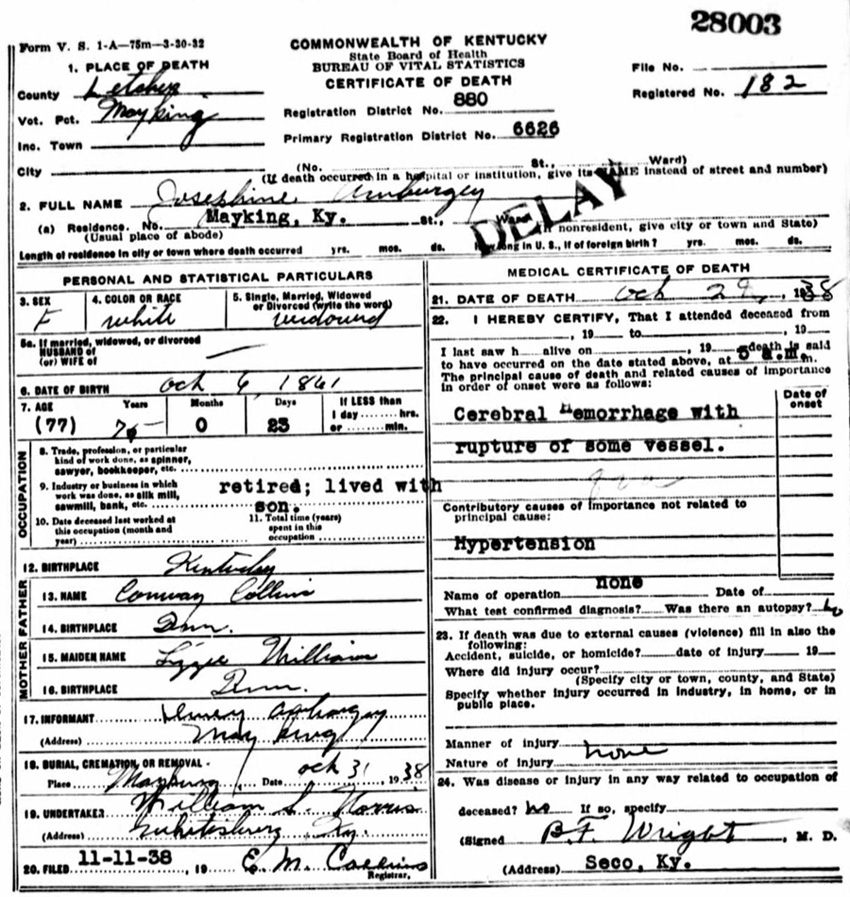 28003
Form V. S. 1-A—75m—3-30-32
COMMONWEALTH OF KENTUCKY
State Board of Health
BUREAU OF VITAL STATISTICS
CERTIFICATE OF DEATH
File No.
Registered No. 182
Registration District No. 880
Primary Registration District No. 6626
1. PLACE OF DEATH
County Letcher
Vot. Pct. Mayking
Inc. Town
City (No. St., Ward)
(If death occurred in a hospital or institution, give its NAME instead of street and number)
2. FULL NAME Josephine Amburgey
DELAY
(a) Residence. No. Mayking, Ky. St., Ward
(Usual place of abode) (If nonresident, give city or town and State)
Length of residence in city or town where death occurred yrs. mos. ds. How long in U. S., if of foreign birth? yrs. mos. ds.
PERSONAL AND STATISTICAL PARTICULARS
3. SEX F
4. COLOR OR RACE white
5. Single, Married, Widowed or Divorced (write the word) widowed
5a. If married, widowed, or divorced
HUSBAND of
(or) WIFE of —
6. DATE OF BIRTH Oct 6, 1861
7. AGE Years Months Days If LESS than
1 day hrs.
(77) 75 0 23 or min.
OCCUPATION
8. Trade, profession, or particular
kind of work done, as spinner,
sawyer, bookkeeper, etc.
9. Industry or business in which
work was done, as silk mill,
sawmill, bank, etc. retired; lived with
son.
10. Date deceased last worked at
this occupation (month and
year)
11. Total time (years)
spent in this
occupation
12. BIRTHPLACE Kentucky
FATHER
13. NAME Conway Collins
14. BIRTHPLACE
MOTHER
15. MAIDEN NAME Lizzie William
16. BIRTHPLACE
17. INFORMANT Amburgey
(Address) Mayking
18. BURIAL, CREMATION, OR REMOVAL
Place Date Oct 31, 1938
19. UNDERTAKER William S. Norris
(Address) Whitesburg Ky.
20. FILED 11-11-38, 19 E. M. Collins
Registrar.
MEDICAL CERTIFICATE OF DEATH
21. DATE OF DEATH Oct 29, 1938
22. I HEREBY CERTIFY, That I attended deceased from
, 19 to , 19
I last saw h alive on , 19 death is said
to have occurred on the date stated above, at 5 a.m. m.
The principal cause of death and related causes of importance
in order of onset were as follows:
Date of
onset
Cerebral Hemorrhage with
rupture of some vessel.
Contributory causes of importance not related to
principal cause:
Hypertension
Name of operation none Date of
What test confirmed diagnosis? Was there an autopsy? no
23. If death was due to external causes (violence) fill in also the
following:
Accident, suicide, or homicide? date of injury 19
Where did injury occur?
(Specify city or town, county, and State)
Specify whether injury occurred in industry, in home, or in
public place.
Manner of injury none
Nature of injury
24. Was disease or injury in any way related to occupation of
deceased? no If so, specify
(Signed B.F. Wright, M. D.
(Address) Seco, Ky.